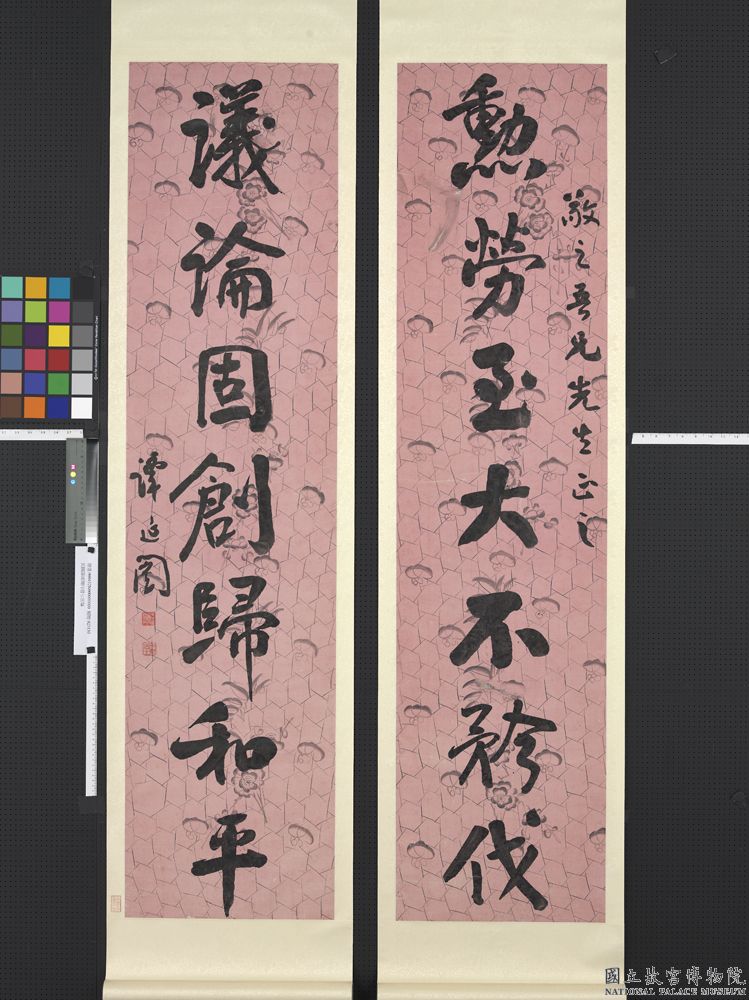 敬之吾兄先生正之
勳勞至大不矜伐
議論固創歸和平
譚延闓
國立故宮博物院
NATIONAL PALACE MUSEUM